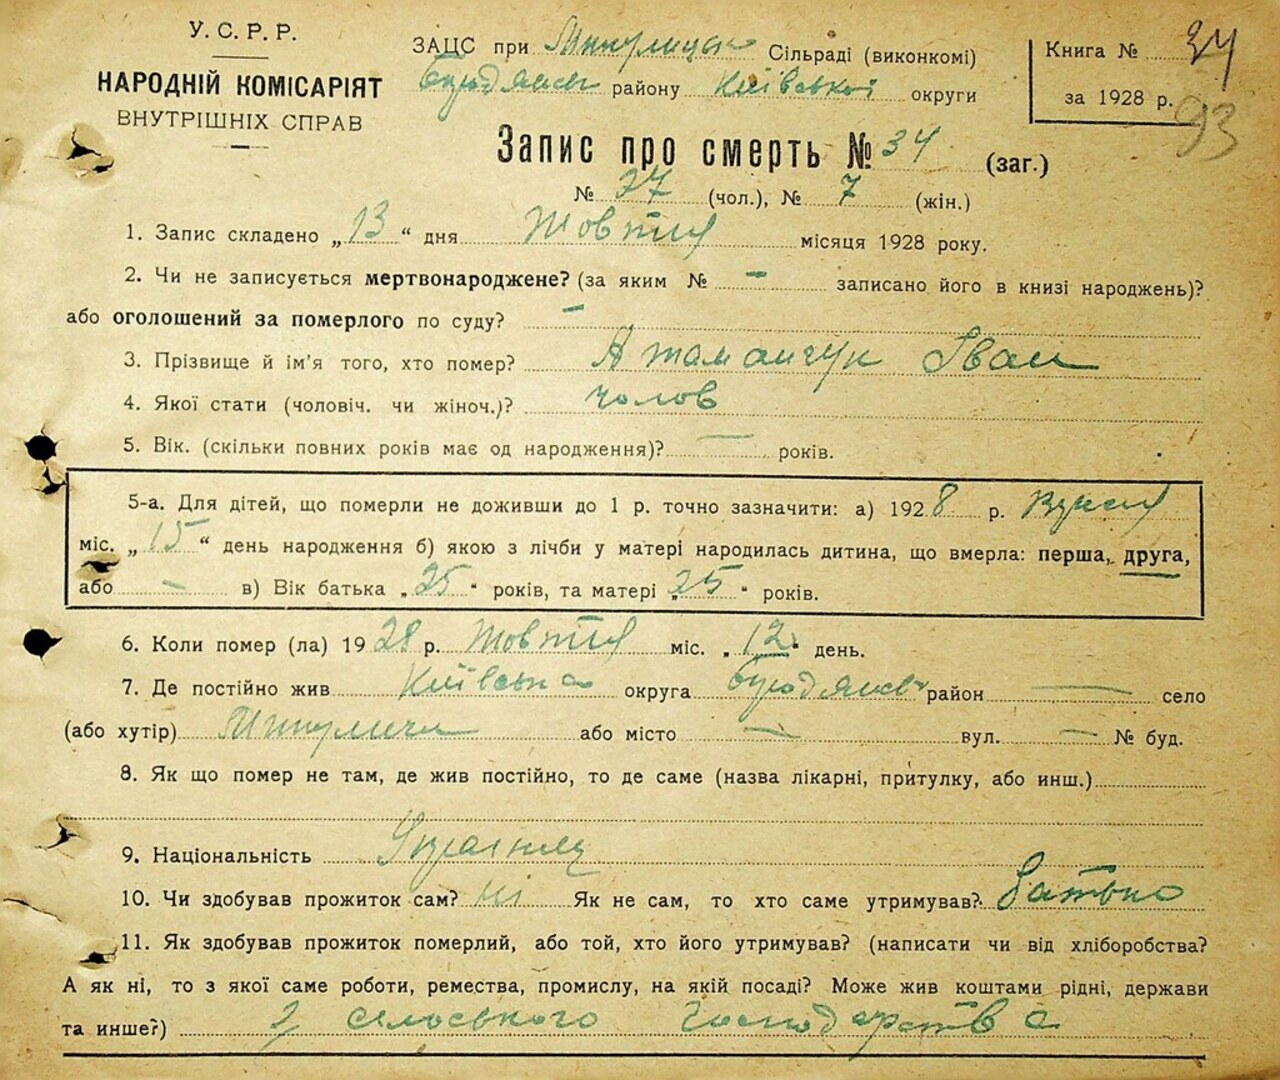 У. С. Р. Р.
НАРОДНІЙ КОМІСАРІЯТ
ВНУТРІШНІХ СПРАВ
ЗАЦС при Микулицьк Сільраді (виконкомі)
Бородянськ району Київської округи
Книга № 34
за 1928 р.
93
Запис про смерть № 34 (заг.)
№ 27 (чол.), № 7 (жін.)
1. Запис складено „ 13 “ дня Жовтня місяця 1928 року.
2. Чи не записується мертвонароджене? (за яким № – записано його в книзі народжень)?
або оголошений за померлого по суду? –
3. Прізвище й ім'я того, хто помер? Атаманчук Іван
4. Якої стати (чоловіч. чи жіноч.)? чолов
5. Вік. (скільки повних років має од народження)? — років.
5-а. Для дітей, що померли не доживши до 1 р. точно зазначити: а) 1928 р.
міс. „ 15 “ день народження б) якою з лічби у матері народилась дитина, що вмерла: перша, друга,
або – в) Вік батька „ 25 “ років, та матері „ 25 “ років.
6. Коли помер (ла) 1928 р. Жовтня міс. „ 12 “ день.
7. Де постійно жив Київська округа Бородянськ район — село
(або хутір) Микуличі або місто — вул. — № буд.
8. Як що помер не там, де жив постійно, то де саме (назва лікарні, притулку, або инш.)
9. Національність
10. Чи здобував прожиток сам? ні Як не сам, то хто саме утримував? батько
11. Як здобував прожиток померлий, або той, хто його утримував? (написати чи від хліборобства?
А як ні, то з якої саме роботи, ремества, промислу, на якій посаді? Може жив коштами рідні, держави
та инше?) з сельського господарства